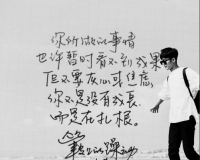 你所做的事情
也许暂时看不到效果
但不要灰心或焦虑
你不是没有成长
而是在扎根。